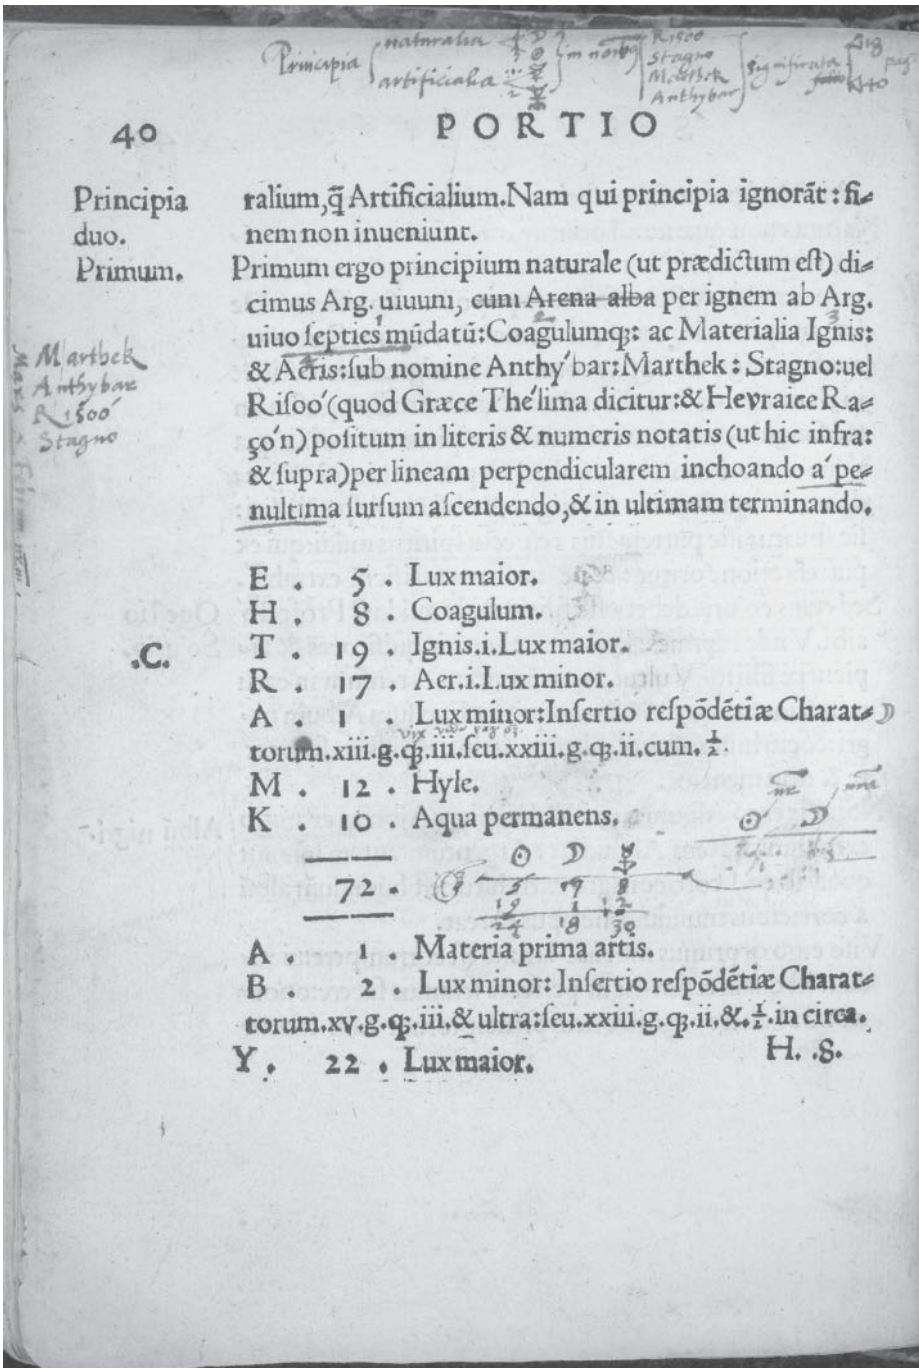 Principia naturalia
artificialia
Risoo
Stagno
Marthek
Anthybar
significata
40
PORTIO
Principia
duo.
Primum.
ralium,q̃ Artificialium.Nam qui principia ignorãt : fi=
nem non inueniunt.
Primum ergo principium naturale (ut prædictum est) di=
cimus Arg. uiuum, cum Arena alba per ignem ab Arg.
uiuo septies mũdatũ:Coagulumqꝫ: ac Materialia Ignis:
& Aeris:sub nomine Anthy´bar:Marthek : Stagno:uel
Risoo´(quod Græce The´lima dicitur:& Hevraice Ra=
ço´n) positum in literis & numeris notatis (ut hic infra:
& supra)per lineam perpendicularem inchoando a´ pe=
nultima sursum ascendendo,& in ultimam terminando.
Marthek
Anthybar
Risoo´
Stagno
.C.
E . 5 . Lux maior.
H . 8 . Coagulum.
T . 19 . Ignis.i.Lux maior.
R . 17 . Aer.i.Lux minor.
A . 1 . Lux minor:Insertio respõdẽtiæ Charat= ☽
torum.xiii.g.qꝫ.iii.seu.xxiii.g.qꝫ.ii.cum.½.
M . 12 . Hyle.
K . 10 . Aqua permanens.
☉ ☽
☉ ☽
72 .
5 8
19 1 12
24 18 30
A . 1 . Materia prima artis.
B . 2 . Lux minor: Insertio respõdẽtiæ Charat=
torum.xv.g.qꝫ.iii.& ultra:seu.xxiii.g.qꝫ.ii,&.½.in circa.
Y . 22 . Lux maior. H. .8.